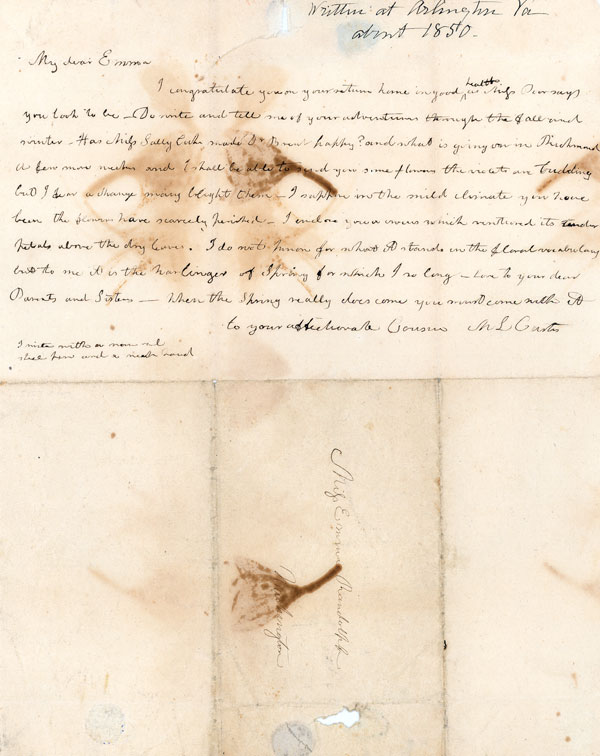 Written at Arlington Va
about 1850.
My dear Emma
I congratulate you on your return home in good health as Miss says
you look to be - Do write and tell me of your adventures through the fall and
winter. Has Miss Sally made Dr happy? and what is going on in Richmond
A few more weeks and I shall be able to send you some flowers the violets are budding
but I fear a change may blight them - I suppose in the mild climate you have
been the flowers have scarcely perished - I enclose you a crocus which ventured its tender
petals above the dry leaves. I do not know for what it stands in the floral vocabulary
but to me it is the harbinger of Spring for which I so long - love to your dear
Parents and Sisters - When the Spring really does come you must come with it
to your affectionate Cousin M L Custis
I write with a new
steel pen and a weak hand
Miss Emma Randolph
Washington